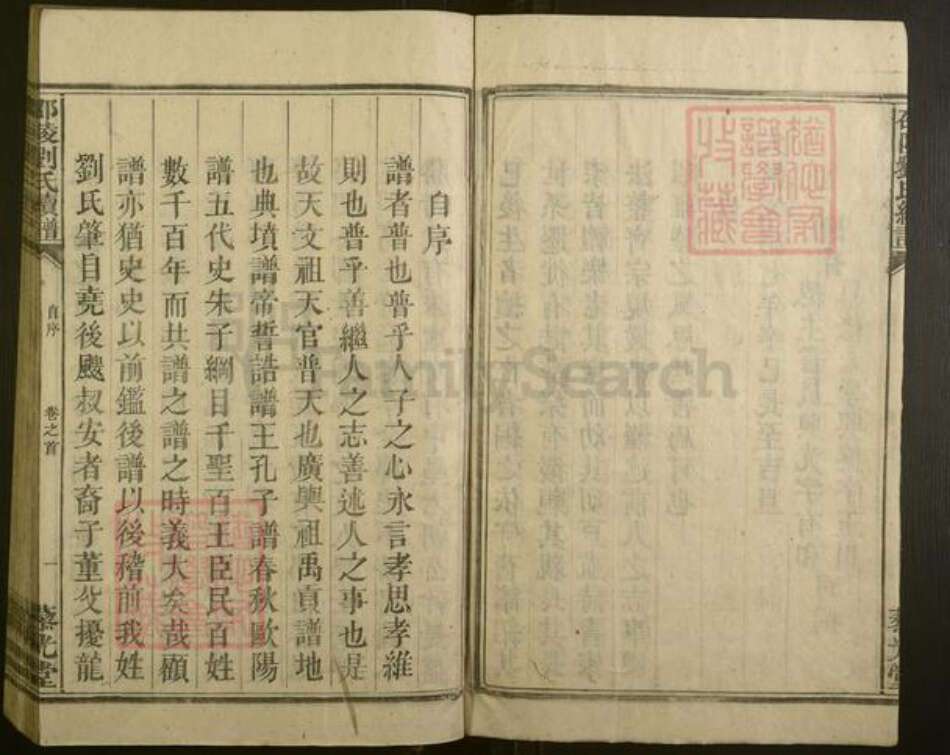 自序
譜者普也普乎人子之心永言孝思孝維
則也普乎善繼人之志善述人之事也是
故天文祖天官普天也廣輿祖禹貢譜地
也典墳譜帝誓誥譜王孔子譜春秋歐陽
譜五代史朱子綱目千聖百王臣民百姓
數千百年而共譜之譜之時義大矣哉顧
譜亦猶史史以前鑑後譜以後稽前我姓
劉氏肇自堯後颺叔安者裔子董父擾龍
邵陵劉氏續譜
自序
卷之首
一
藜光堂
FamilySearch
譜學會
收藏